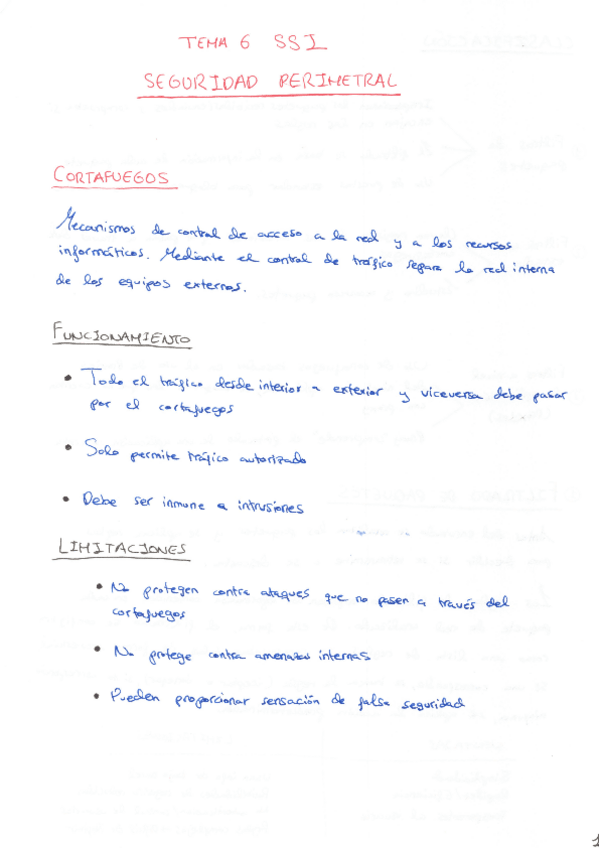 TEMA 6 SSI
SEGURIDAD PERIMETRAL
CORTAFUEGOS
Mecanismos de control de acceso a la red y a los recursos
informáticos. Mediante el control de tráfico separa la red interna
de los equipos externos.
FUNCIONAMIENTO
• Todo el tráfico desde interior a exterior y viceversa debe pasar
por el cortafuegos
• Solo permite tráfico autorizado
• Debe ser inmune a intrusiones
LIMITACIONES
• No protegen contra ataques que no pasen a través del
cortafuegos
• No protege contra amenazas internas
• Pueden proporcionar sensación de falsa seguridad
1